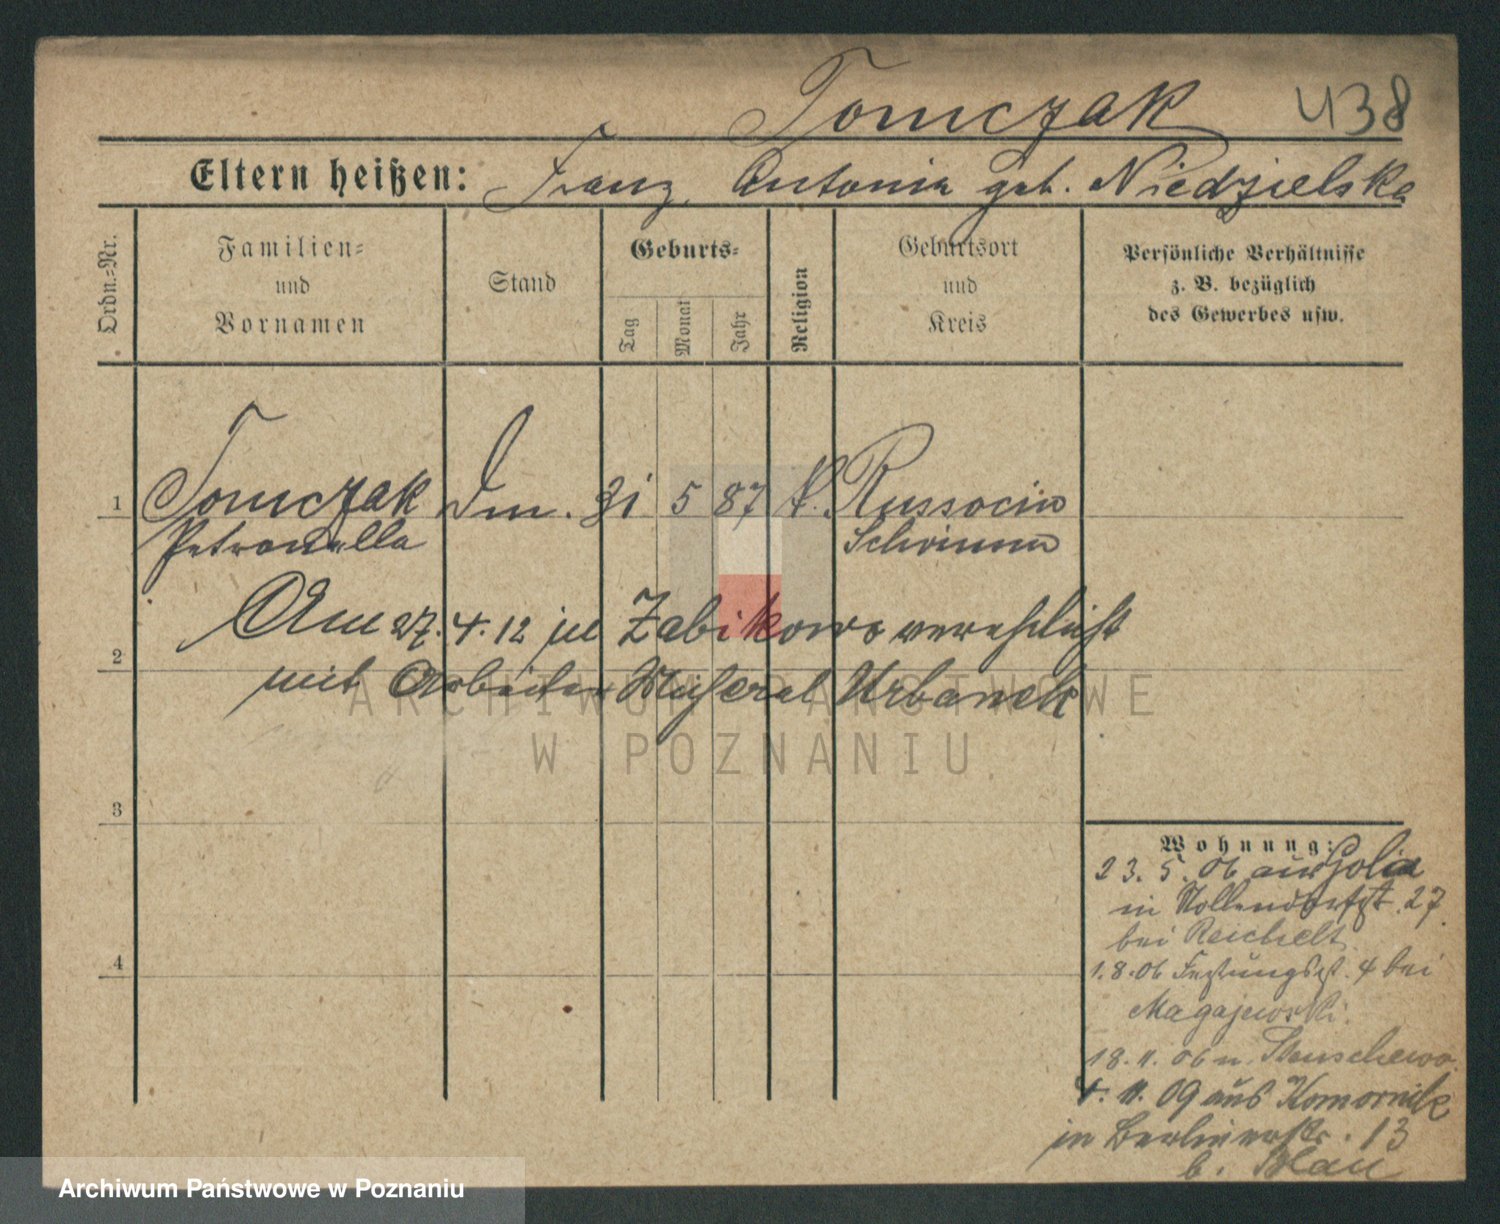 Tomczak 438
Eltern heißen: Franz, Antonia geb. Niedzielska
Ordn.-Nr.
Familien-
und
Vornamen
Stand
Geburts-
Tag
Monat
Jahr
Religion
Geburtsort
und
Kreis
Persönliche Verhältnisse
z. B. bezüglich
des Gewerbes usw.
1 Tomczak Dm. 31 5 87 k. Russocin
Petronella Schrimm
Am 27.4.12 in Zabikowo verehelicht
2
mit Arbeiter Urbanek
ARCHIWUM PAŃSTWOWE
W POZNANIU
3
4
Wohnung:
23.5.06 aus
in Nollendorfst. 27
bei Reichelt
1.8.06 Festungsst. 4 bei
Magajewski.
18.11.06 n.
4.11.09 aus Komornik
in Berlinerstr. 13
b. Blau
Archiwum Państwowe w Poznaniu